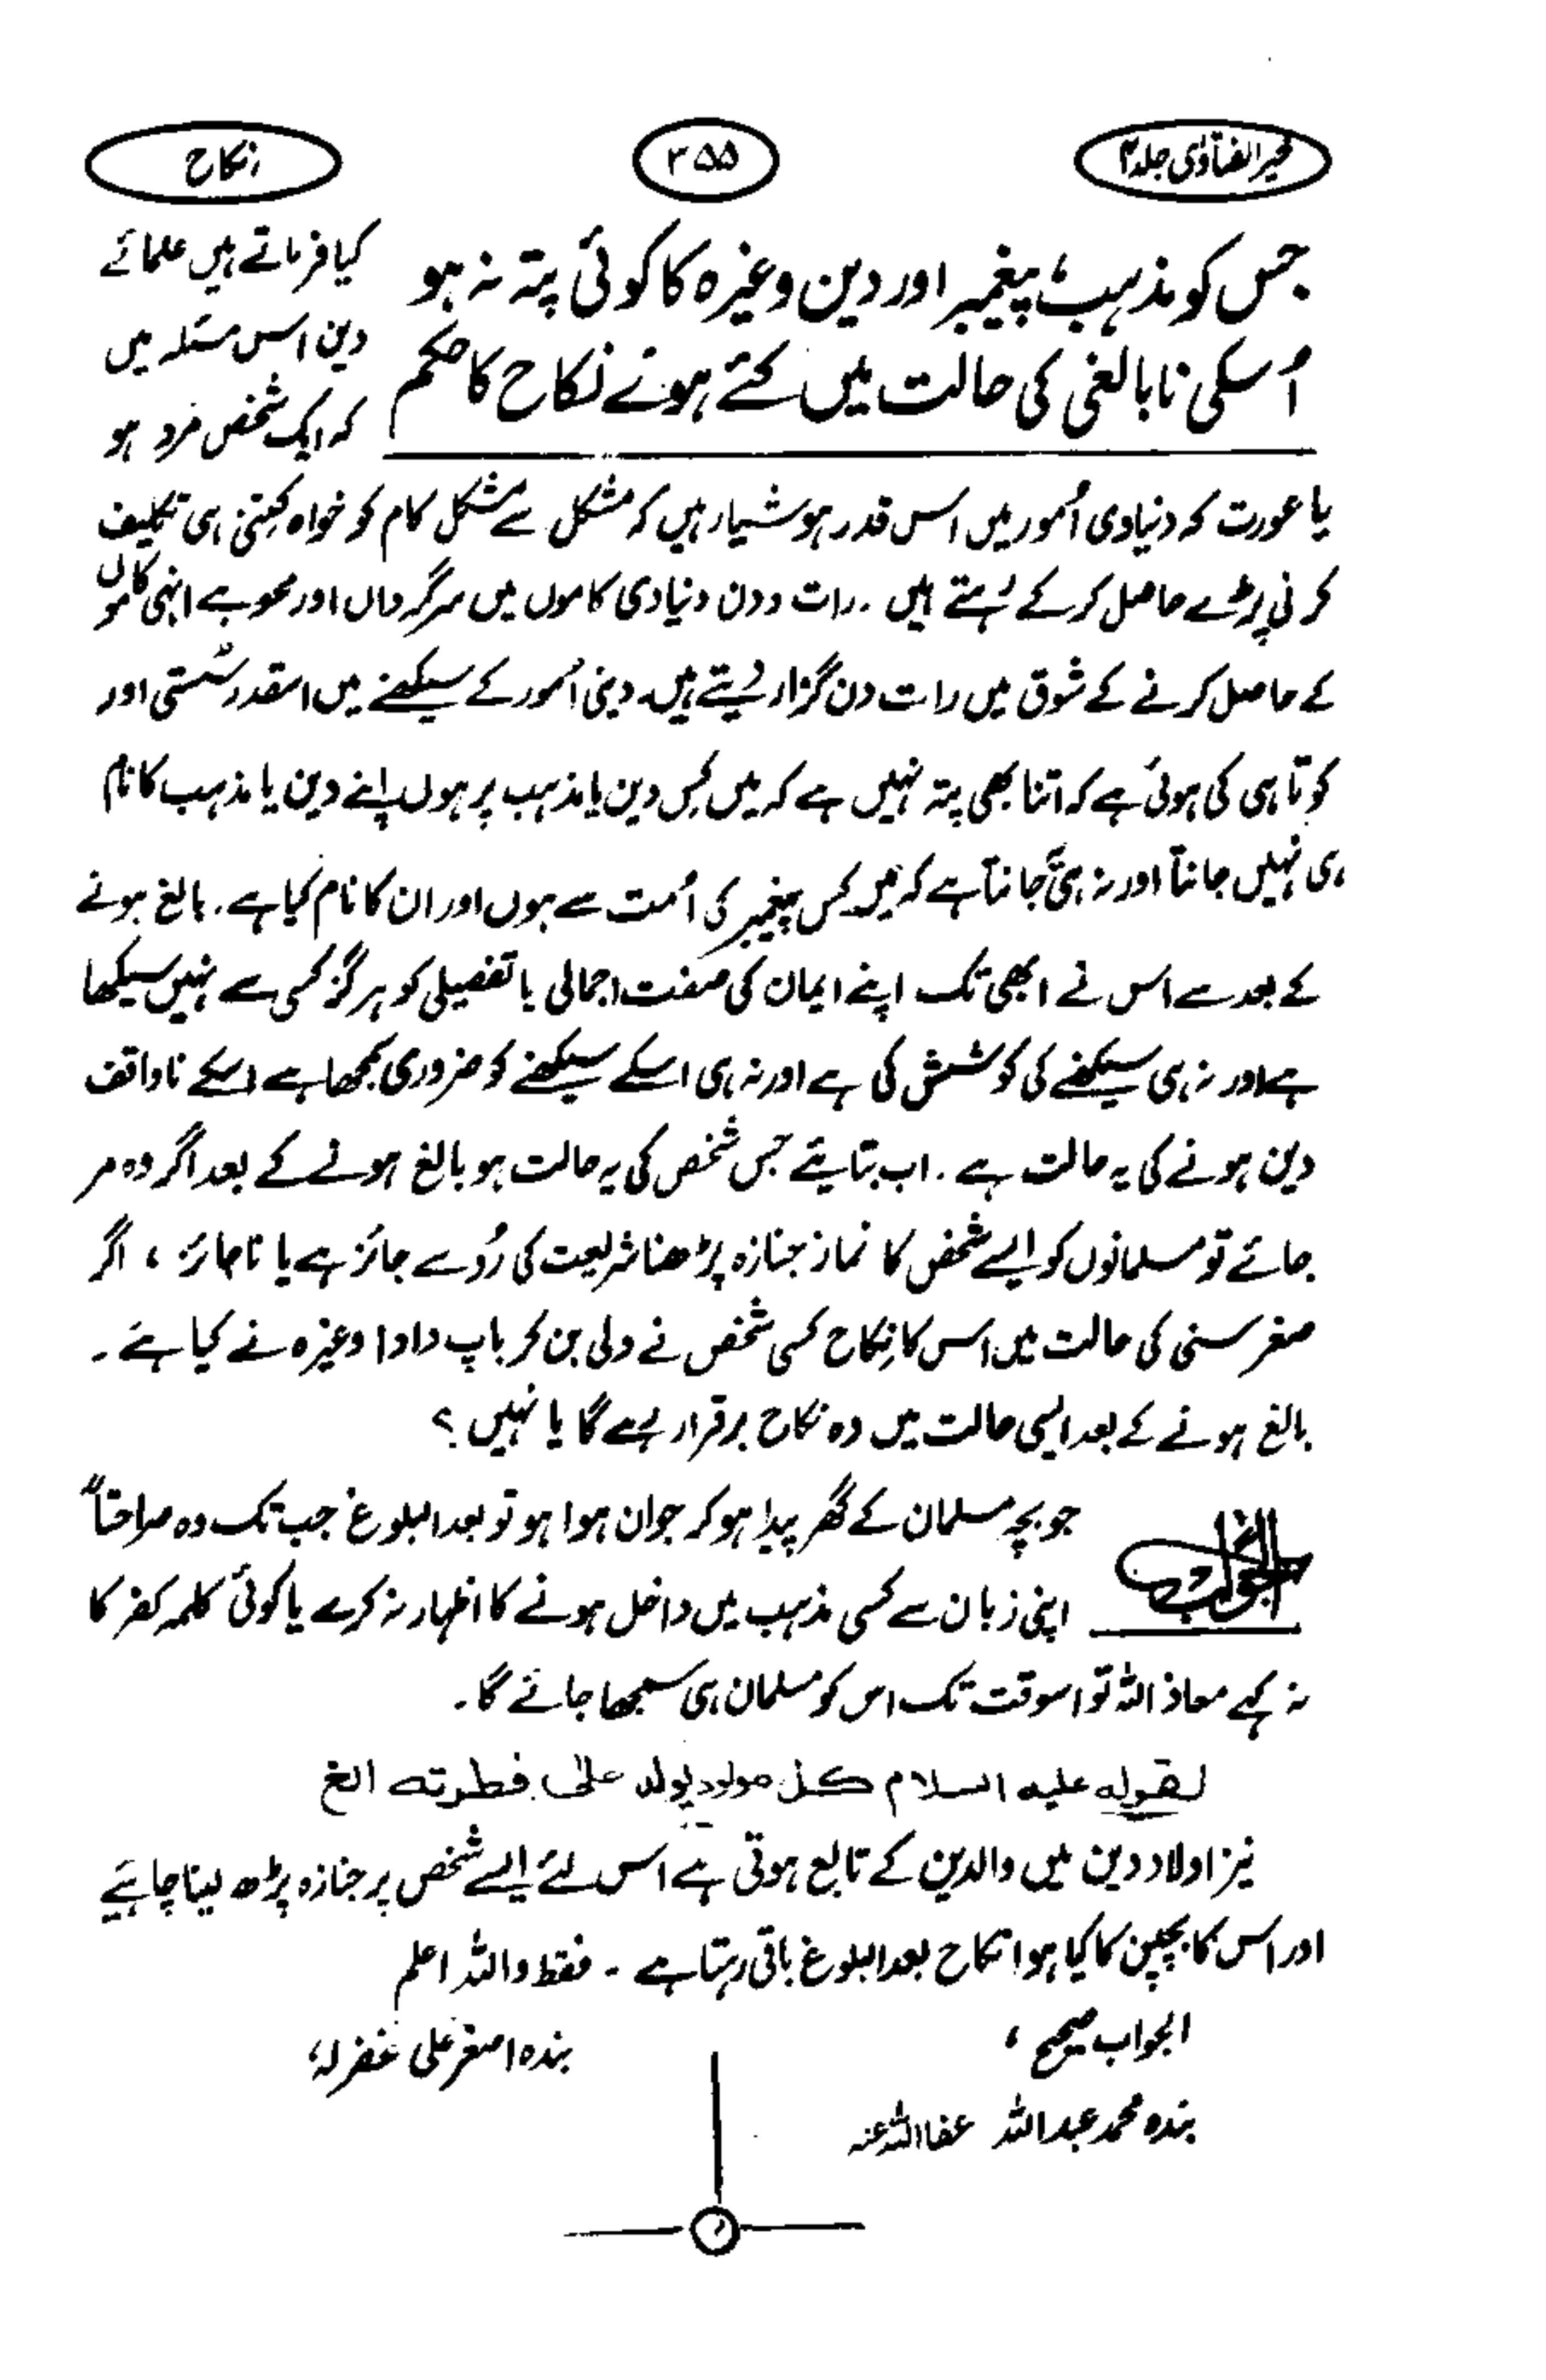 خیر الفتاویٰ جلد ۴
۳۵۵
نکاح
جس کو مذہب، پیغمبر اور دین وغیرہ کا کوئی پتہ نہ ہو
اُسکی نابالغی کی حالت میں کئے ہوئے نکاح کا حکم
کیا فرماتے ہیں علمائے
دین اس مسئلہ میں
کہ ایک شخص مرد ہو
یا عورت کہ دنیاوی اُمور میں اس قدر ہوشیار ہیں کہ مشکل سے مشکل کام کو خواہ کتنی ہی تکلیف
کرنی پڑے حاصل کرکے رہتے ہیں۔ رات و دن دنیاوی کاموں میں سرگرداں اور محو ہے انہی کاموں
کے حاصل کرنے کے شوق میں رات دن گزار دیتے ہیں۔ دینی اُمور کے سیکھنے میں اسقدر سُستی اور
کوتاہی کی ہوئی ہے کہ اتنا بھی پتہ نہیں ہے کہ میں کس دین یا مذہب پر ہوں اپنے دین یا مذہب کا نام
ہی نہیں جانتا اور نہ ہی جانتا ہے کہ میں کس پیغمبر کی اُمت سے ہوں اور ان کا نام کیا ہے۔ بالغ ہونے
کے بعد سے اس نے ابھی تک اپنے ایمان کی صفت اجمالی یا تفصیلی کو ہرگز کسی سے نہیں سیکھا
ہے اور نہ ہی سیکھنے کی کوشش کی ہے اور نہ ہی اسکے سیکھنے کو ضروری سمجھا ہے اسکے ناواقف
دین ہونے کی یہ حالت ہے۔ اب بتایئے جس شخص کی یہ حالت ہو بالغ ہونے کے بعد اگر وہ مر
جائے تو مسلمانوں کو ایسے شخص کا نماز جنازہ پڑھنا شریعت کی رُو سے جائز ہے یا ناجائز، اگر
صغر سنی کی حالت میں اس کا نِکاح کسی شخص نے ولی بن کر باپ دادا وغیرہ نے کیا ہے۔
بالغ ہونے کے بعد ایسی حالت میں وہ نکاح برقرار رہے گا یا نہیں؟
الجواب
جو بچہ مسلمان کے گھر پیدا ہوکر جوان ہوا ہو تو بعد البلوغ جب تک وہ صراحتاً
اپنی زبان سے کسی مذہب میں داخل ہونے کا اظہار نہ کرے یا کوئی کلمہ کفر کا
نہ کہے معاذ اللہ تو اسوقت تک اس کو مسلمان ہی سمجھا جائے گا۔
لقوله عليه السلام كل مولود يولد على فطرته الخ
نیز اولاد دین میں والدین کے تابع ہوتی ہے اس لئے ایسے شخص پر جنازہ پڑھ لینا چاہیئے
اور اس کا بچپن کا کیا ہوا نکاح بعد البلوغ باقی رہتا ہے۔ فقط واللہ اعلم
الجواب صحیح،
بندہ اصغر علی غفرلہٗ
بندہ محمد عبداللہ عفا اللہ عنہ